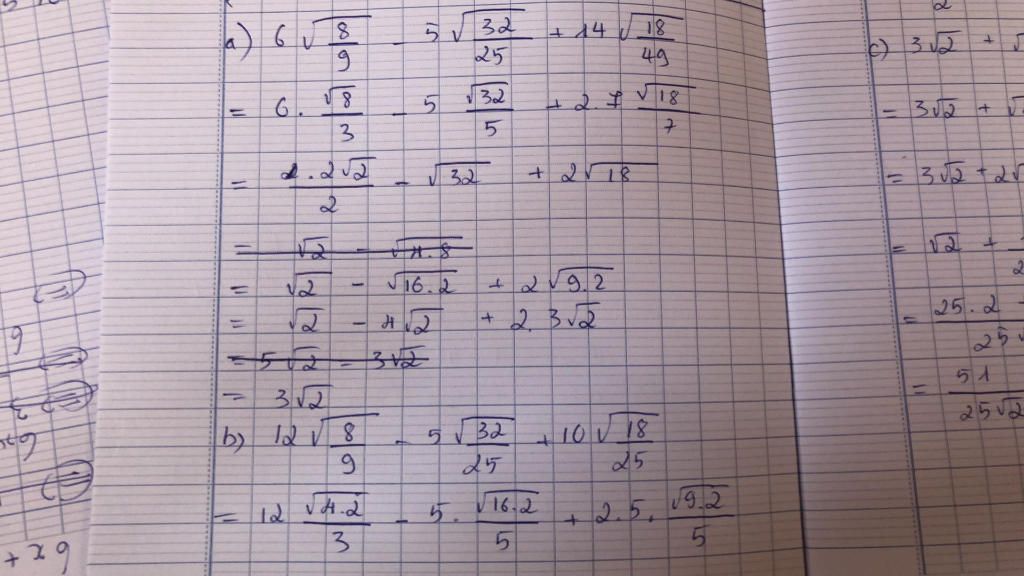 a) 6√(8/9) - 5√(32/25) + 14√(18/49)
= 6 . √8/3 - 5 √32/5 + 2.7 √18/7
= 2.2√2/2 - √32 + 2√18
= √2 - √4.8
= √2 - √16.2 + 2√9.2
= √2 - 4√2 + 2. 3√2
= 5√2 - 3√2
= 3√2
b) 12√(8/9) - 5√(32/25) + 10√(18/25)
= 12 √4.2/3 - 5. √16.2/5 + 2.5. √9.2/5
c) 3√2 + √
= 3√2 + √
= 3√2 + 2√
= √2 +
= 25.2/25√
= 51/25√2
9
+ x9